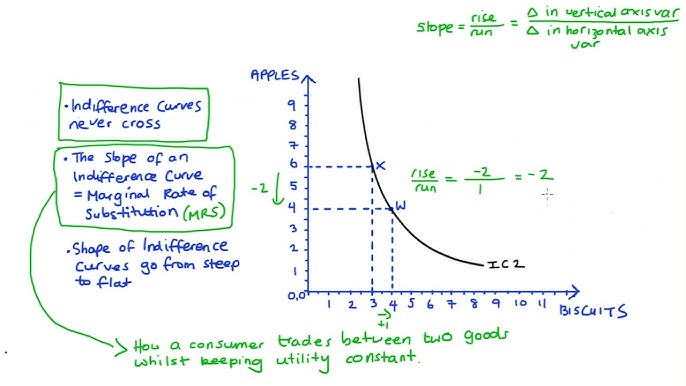 slope = rise/run = Δ in vertical axis var / Δ in horizontal axis var
APPLES
• Indifference Curves
never cross
• The Slope of an
Indifference Curve
= Marginal Rate of
Substitution (MRS)
• Shape of Indifference
Curves go from steep
to flat
9
8
7
6
5
4
3
2
1
0,0
-2
X
W
rise/run = -2/1 = -2
IC2
1 2 3 4 5 6 7 8 9 10 11
BISCUITS
+1
How a consumer trades between two goods
whilst keeping utility constant.